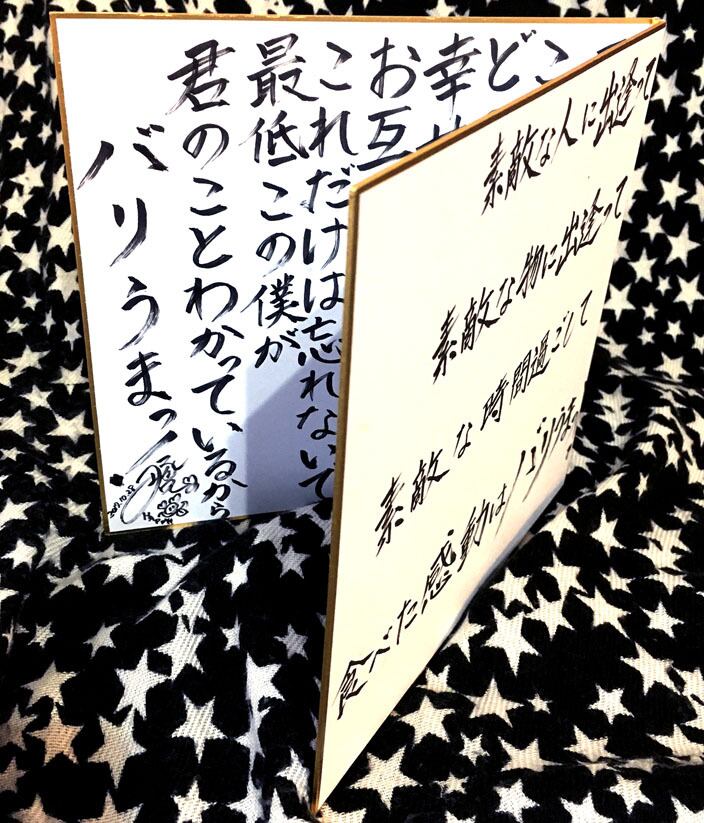 こ
ど
幸
お互
これだけは忘れないで
最低この僕が
君のことわかっているから
バリうまっ!
素敵な人に出逢って
素敵な物に出逢って
素敵な時間過ごして
食べた感動はバリうまっ